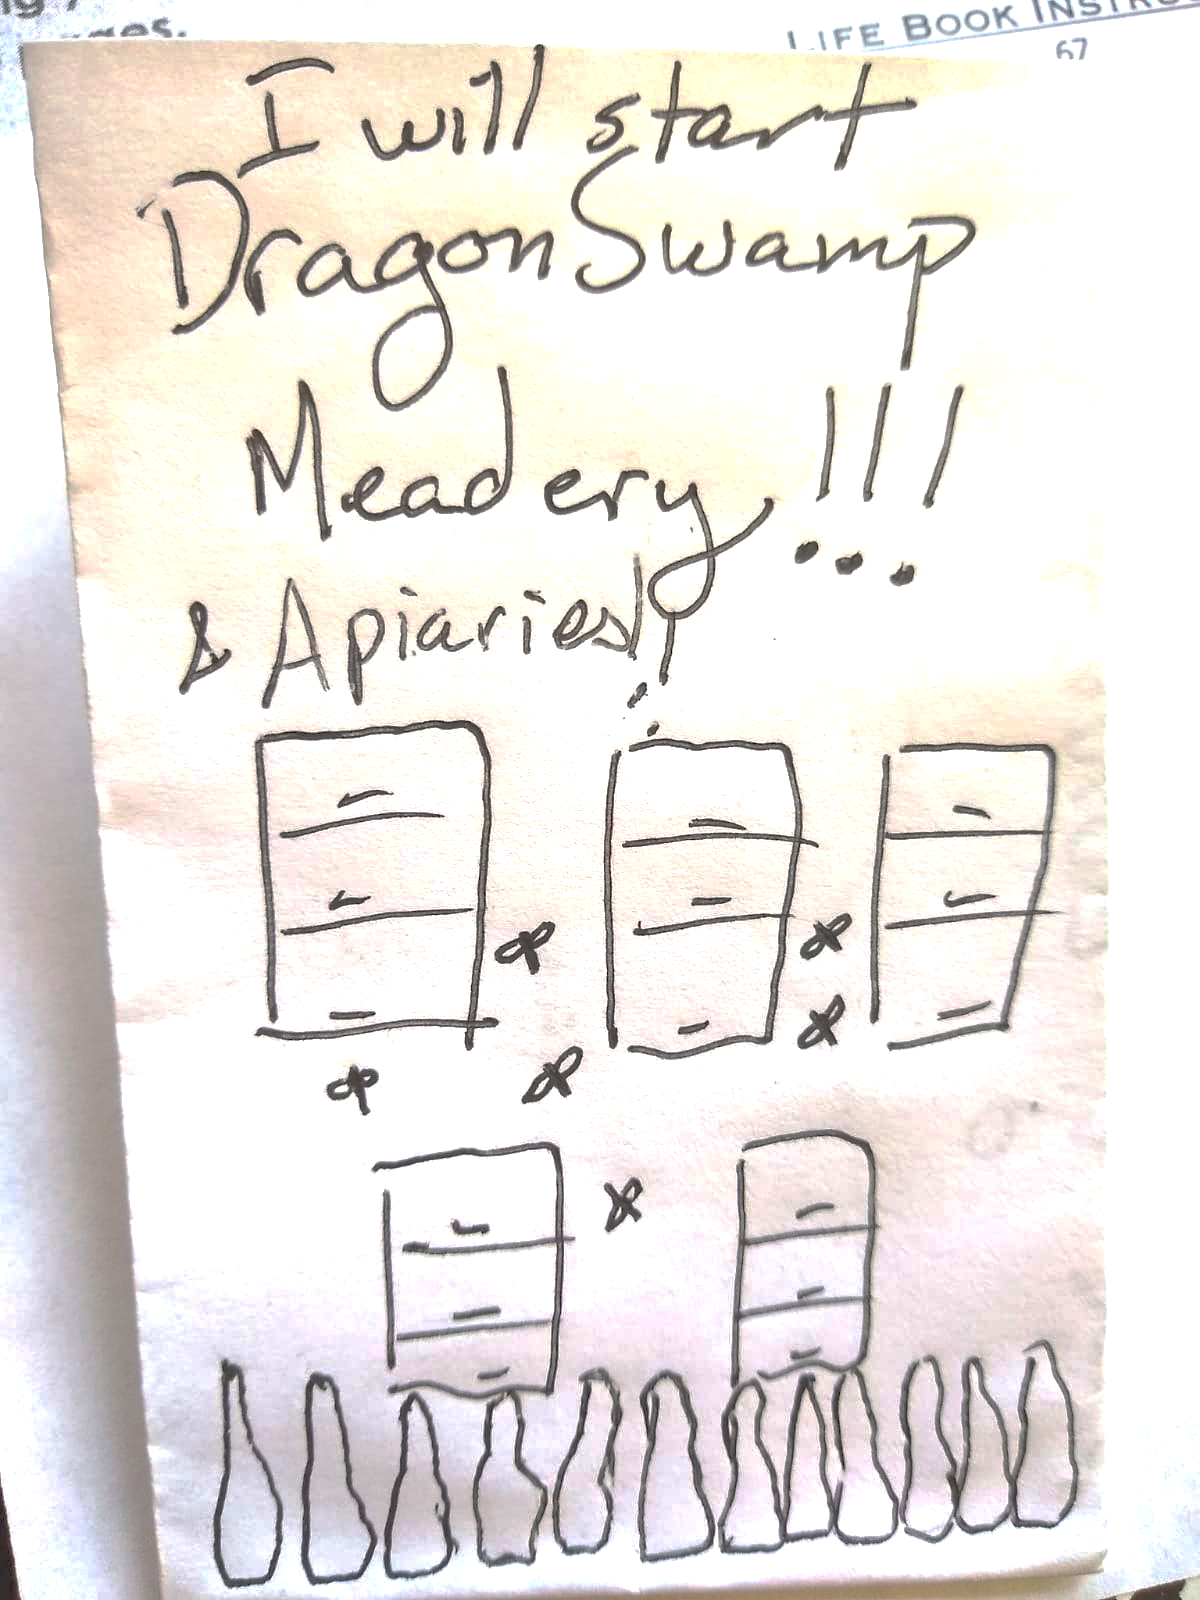 LIFE BOOK
67
I will start
DragonSwamp
Meadery!!!
& Apiaries!!